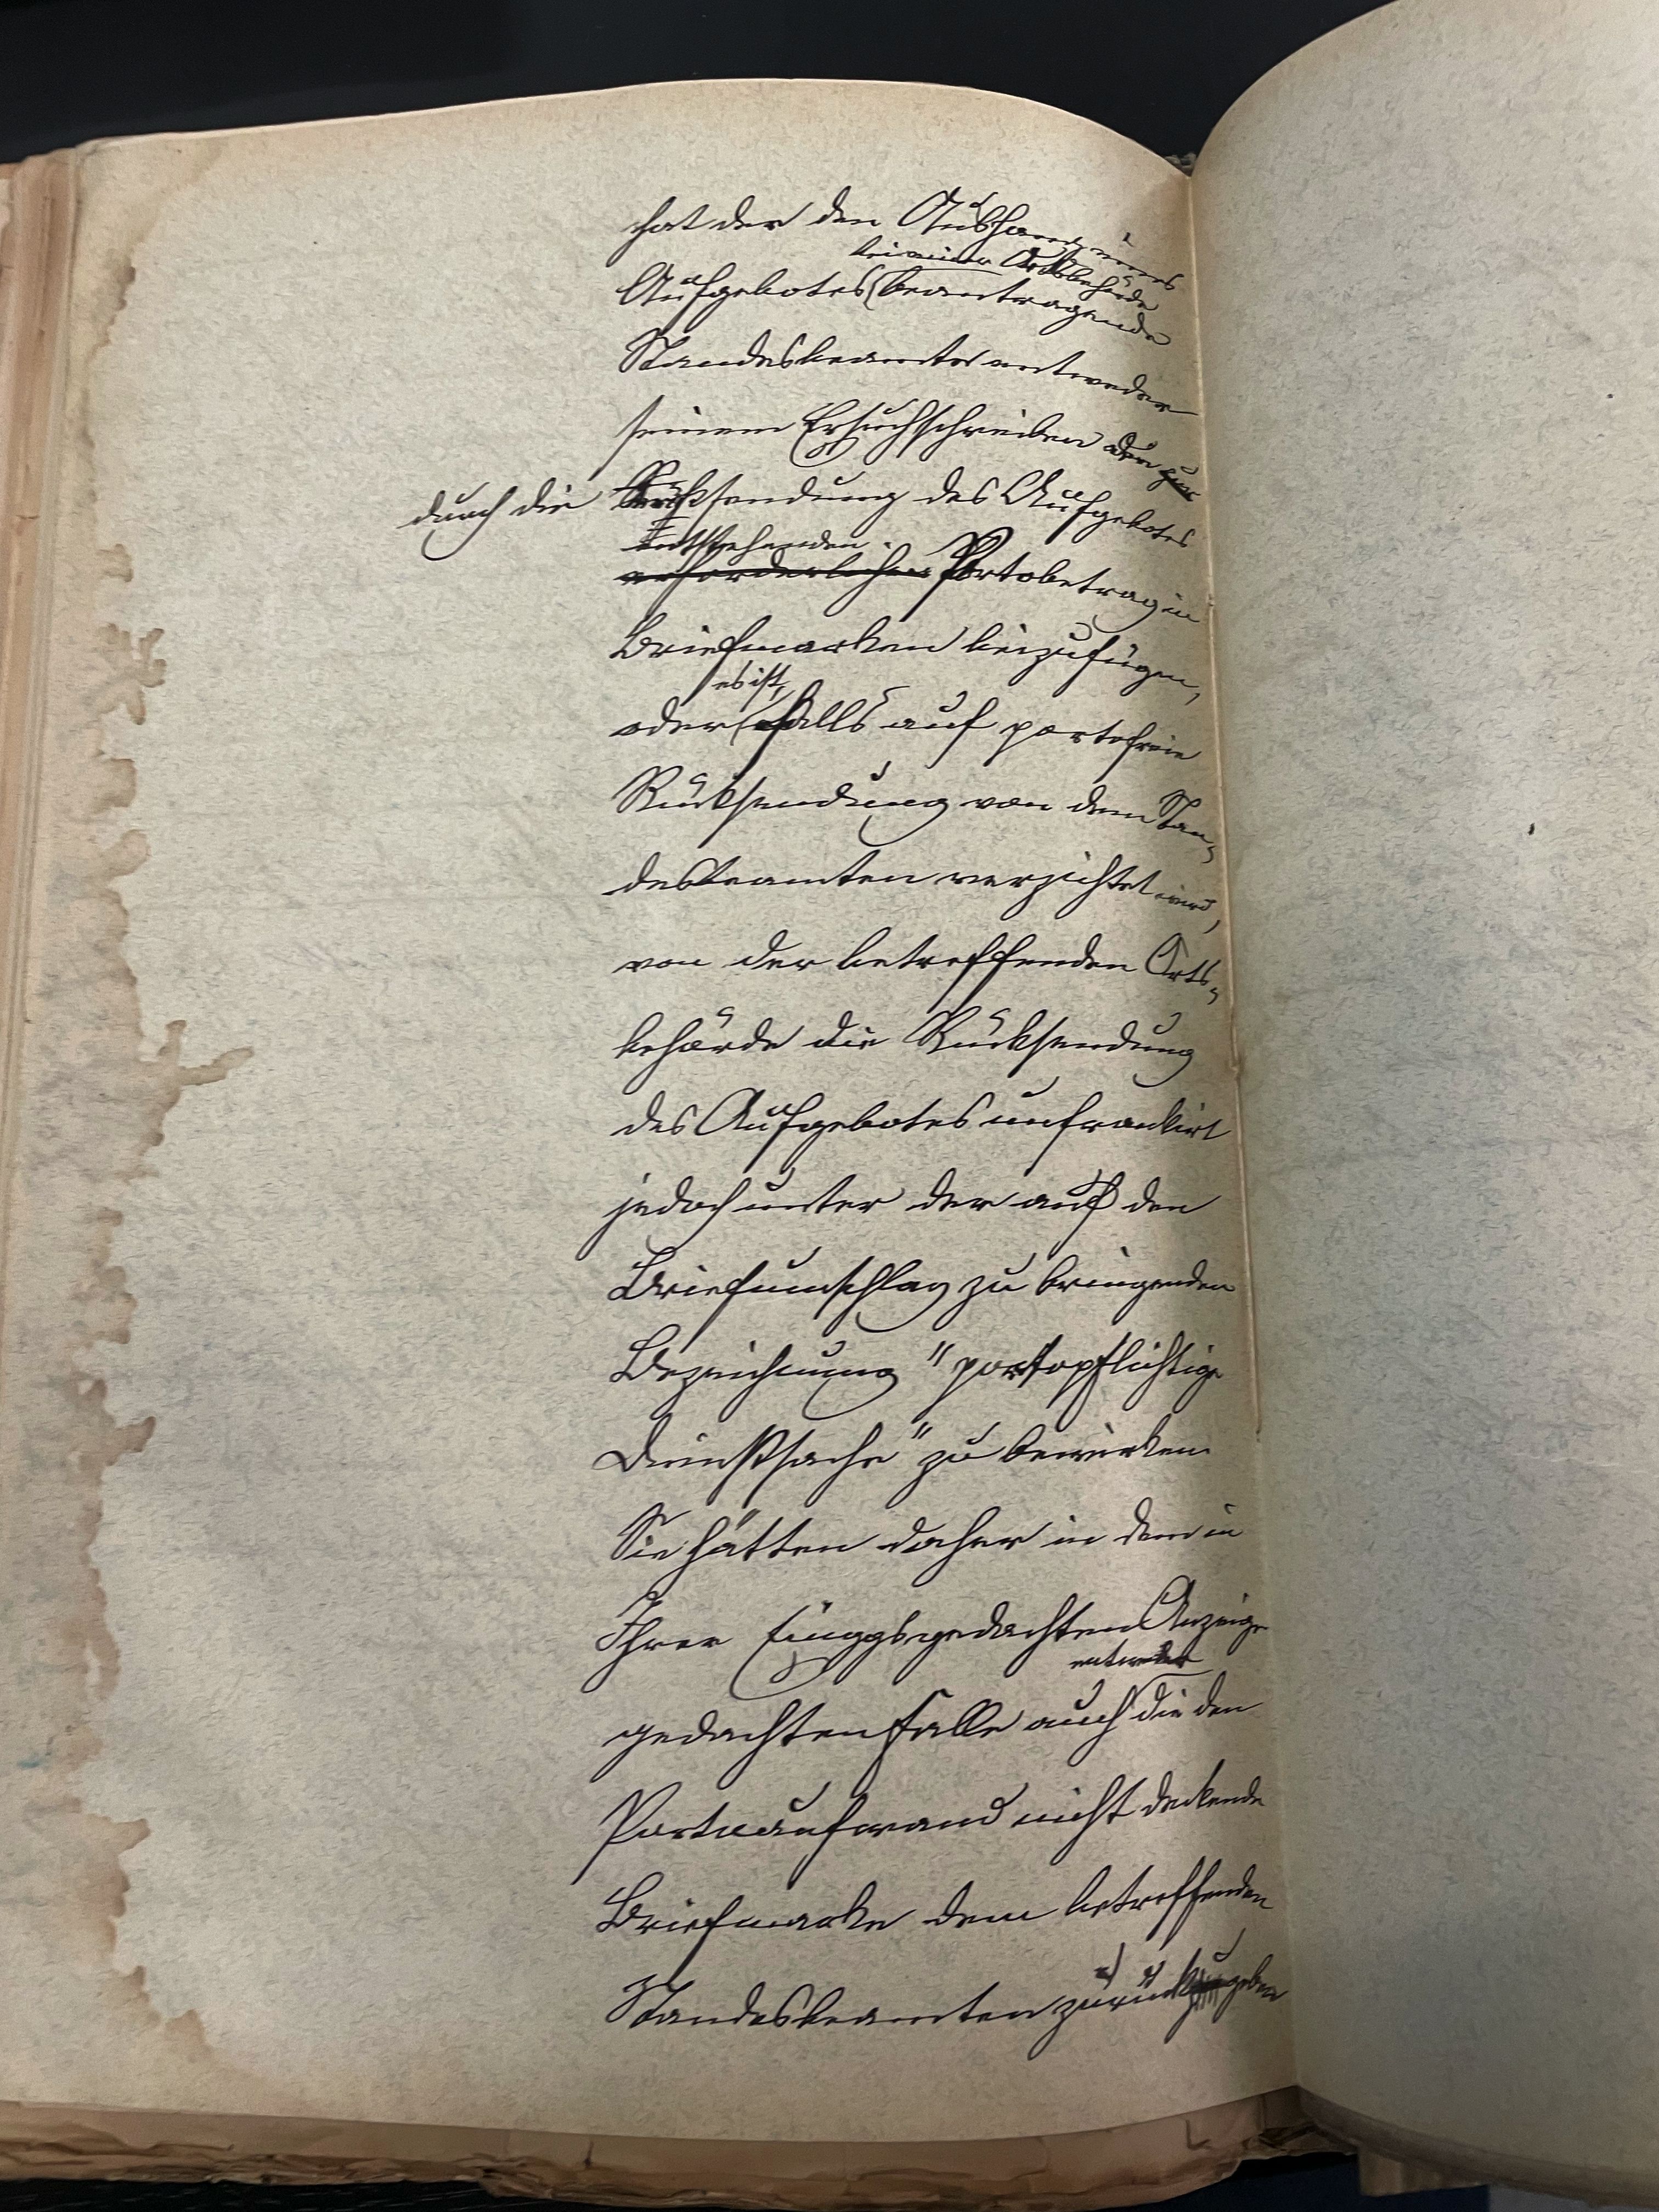 hat der den Aushang eines
bei einer Ortsbehörde
Aufgebotes beantragende
Standesbeamte entweder
seinem Ersuchschreiben den zur
durch die Rücksendung des Aufgebotes
entstehenden
erforderlichen Portobetrag in
Briefmarken beizufügen,
es ist,
oder falls auf portofreie
Rücksendung von dem Stan-
desbeamten verzichtet wird,
von der betreffenden Orts-
behörde die Rücksendung
des Aufgebotes unfrankirt
jedoch unter der auf den
Briefumschlag zu bringenden
Bezeichnung "portopflichtige
Dienstsache" zu bewirken.
Sie hätten daher in dem in
Ihrer Einggsgedachten Anzeige
entweder
gedachten Falle auch die den
Portoaufwand nicht deckende
Briefmarke dem betreffenden
Standesbeamten zurückzugeben